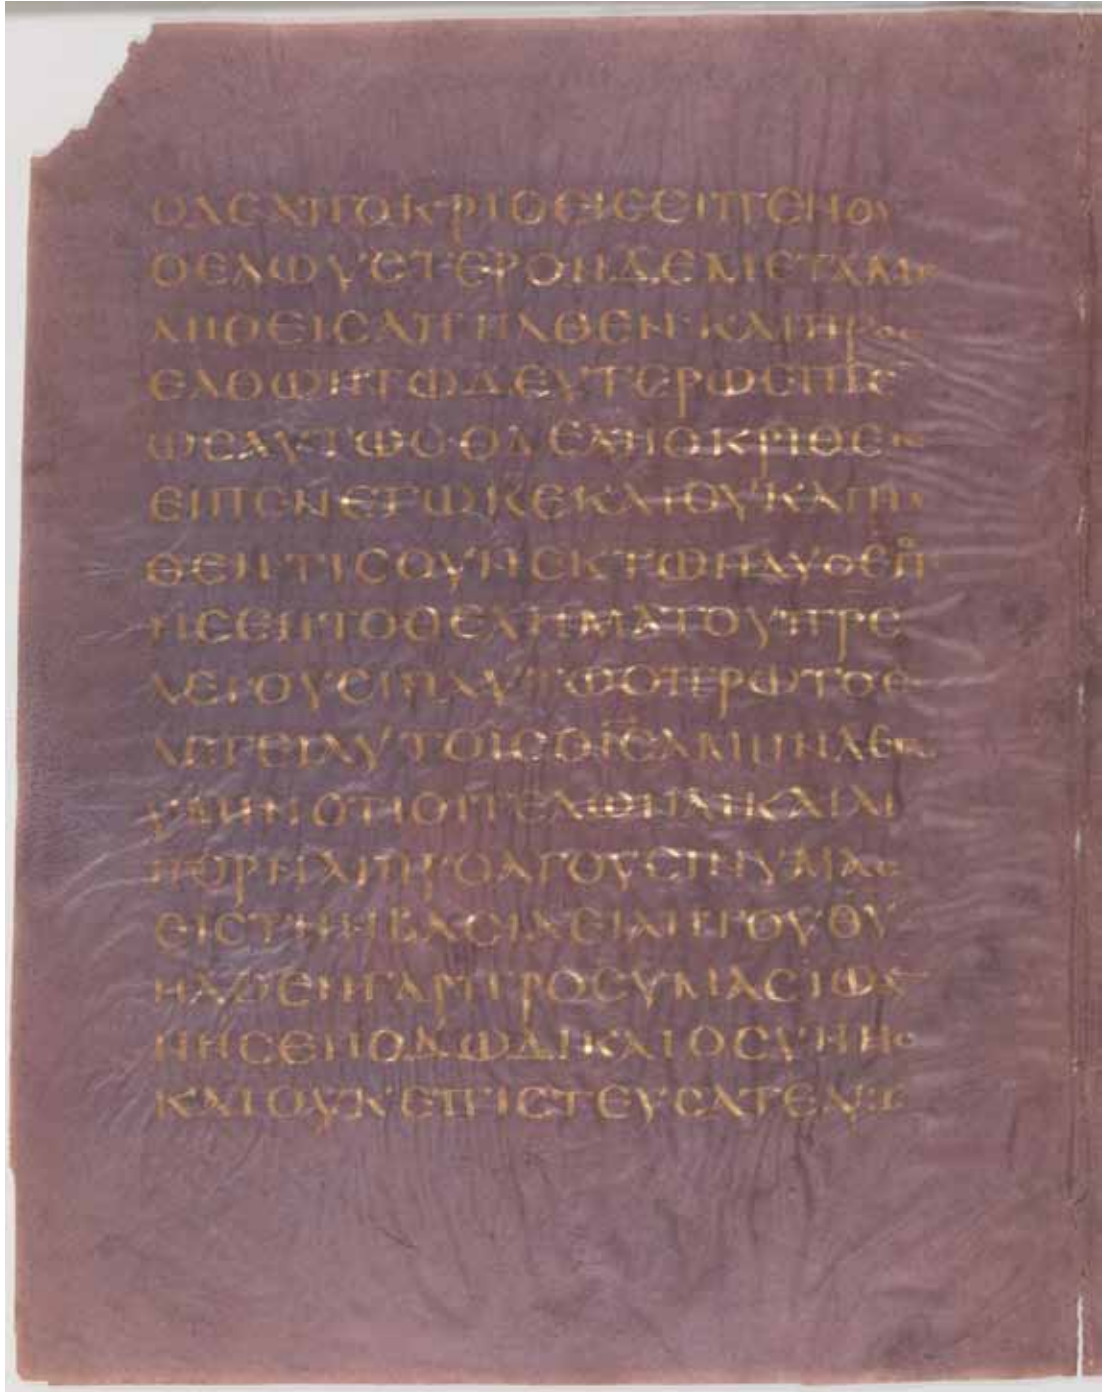 ΟΔΕΑΠΟΚΡΙΘΕΙCΕΙΠΕΝΟΥ
ΘΕΛΩΥCΤΕΡΟΝΔΕΜΕΤΑΜΕ
ΛΗΘΕΙCΑΠΗΛΘΕΝΚΑΙΠΡΟC
ΕΛΘΩΝΤΩΔΕΥΤΕΡΩΕΙΠΕ
ΩCΑΥΤΩCΟΔΕΑΠΟΚΡΙΘΕΙC
ΕΙΠΕΝΕΓΩΚΕΚΑΙΟΥΚΑΠΗΛ
ΘΕΝΤΙCΟΥΝΕΚΤΩΝΔΥΟΕΠΟΙ
ΗCΕΝΤΟΘΕΛΗΜΑΤΟΥΠΡC
ΛΕΓΟΥCΙΝΑΥΤΩΟΠΡΩΤΟC
ΛΕΓΕΙΑΥΤΟΙCΟΙCΑΜΗΝΛΕΓΩ
ΥΜΙΝΟΤΙΟΙΤΕΛΩΝΑΙΚΑΙΑΙ
ΠΟΡΝΑΙΠΡΟΑΓΟΥCΙΝΥΜΑC
ΕΙCΤΗΝΒΑCΙΛΕΙΑΝΤΟΥΘΥ
ΗΛΘΕΝΓΑΡΠΡΟCΥΜΑCΙΩΑΝ
ΝΗCΕΝΟΔΩΔΙΚΑΙΟCΥΝΗC
ΚΑΙΟΥΚΕΠΙCΤΕΥCΑΤΕΑΥΤΩ